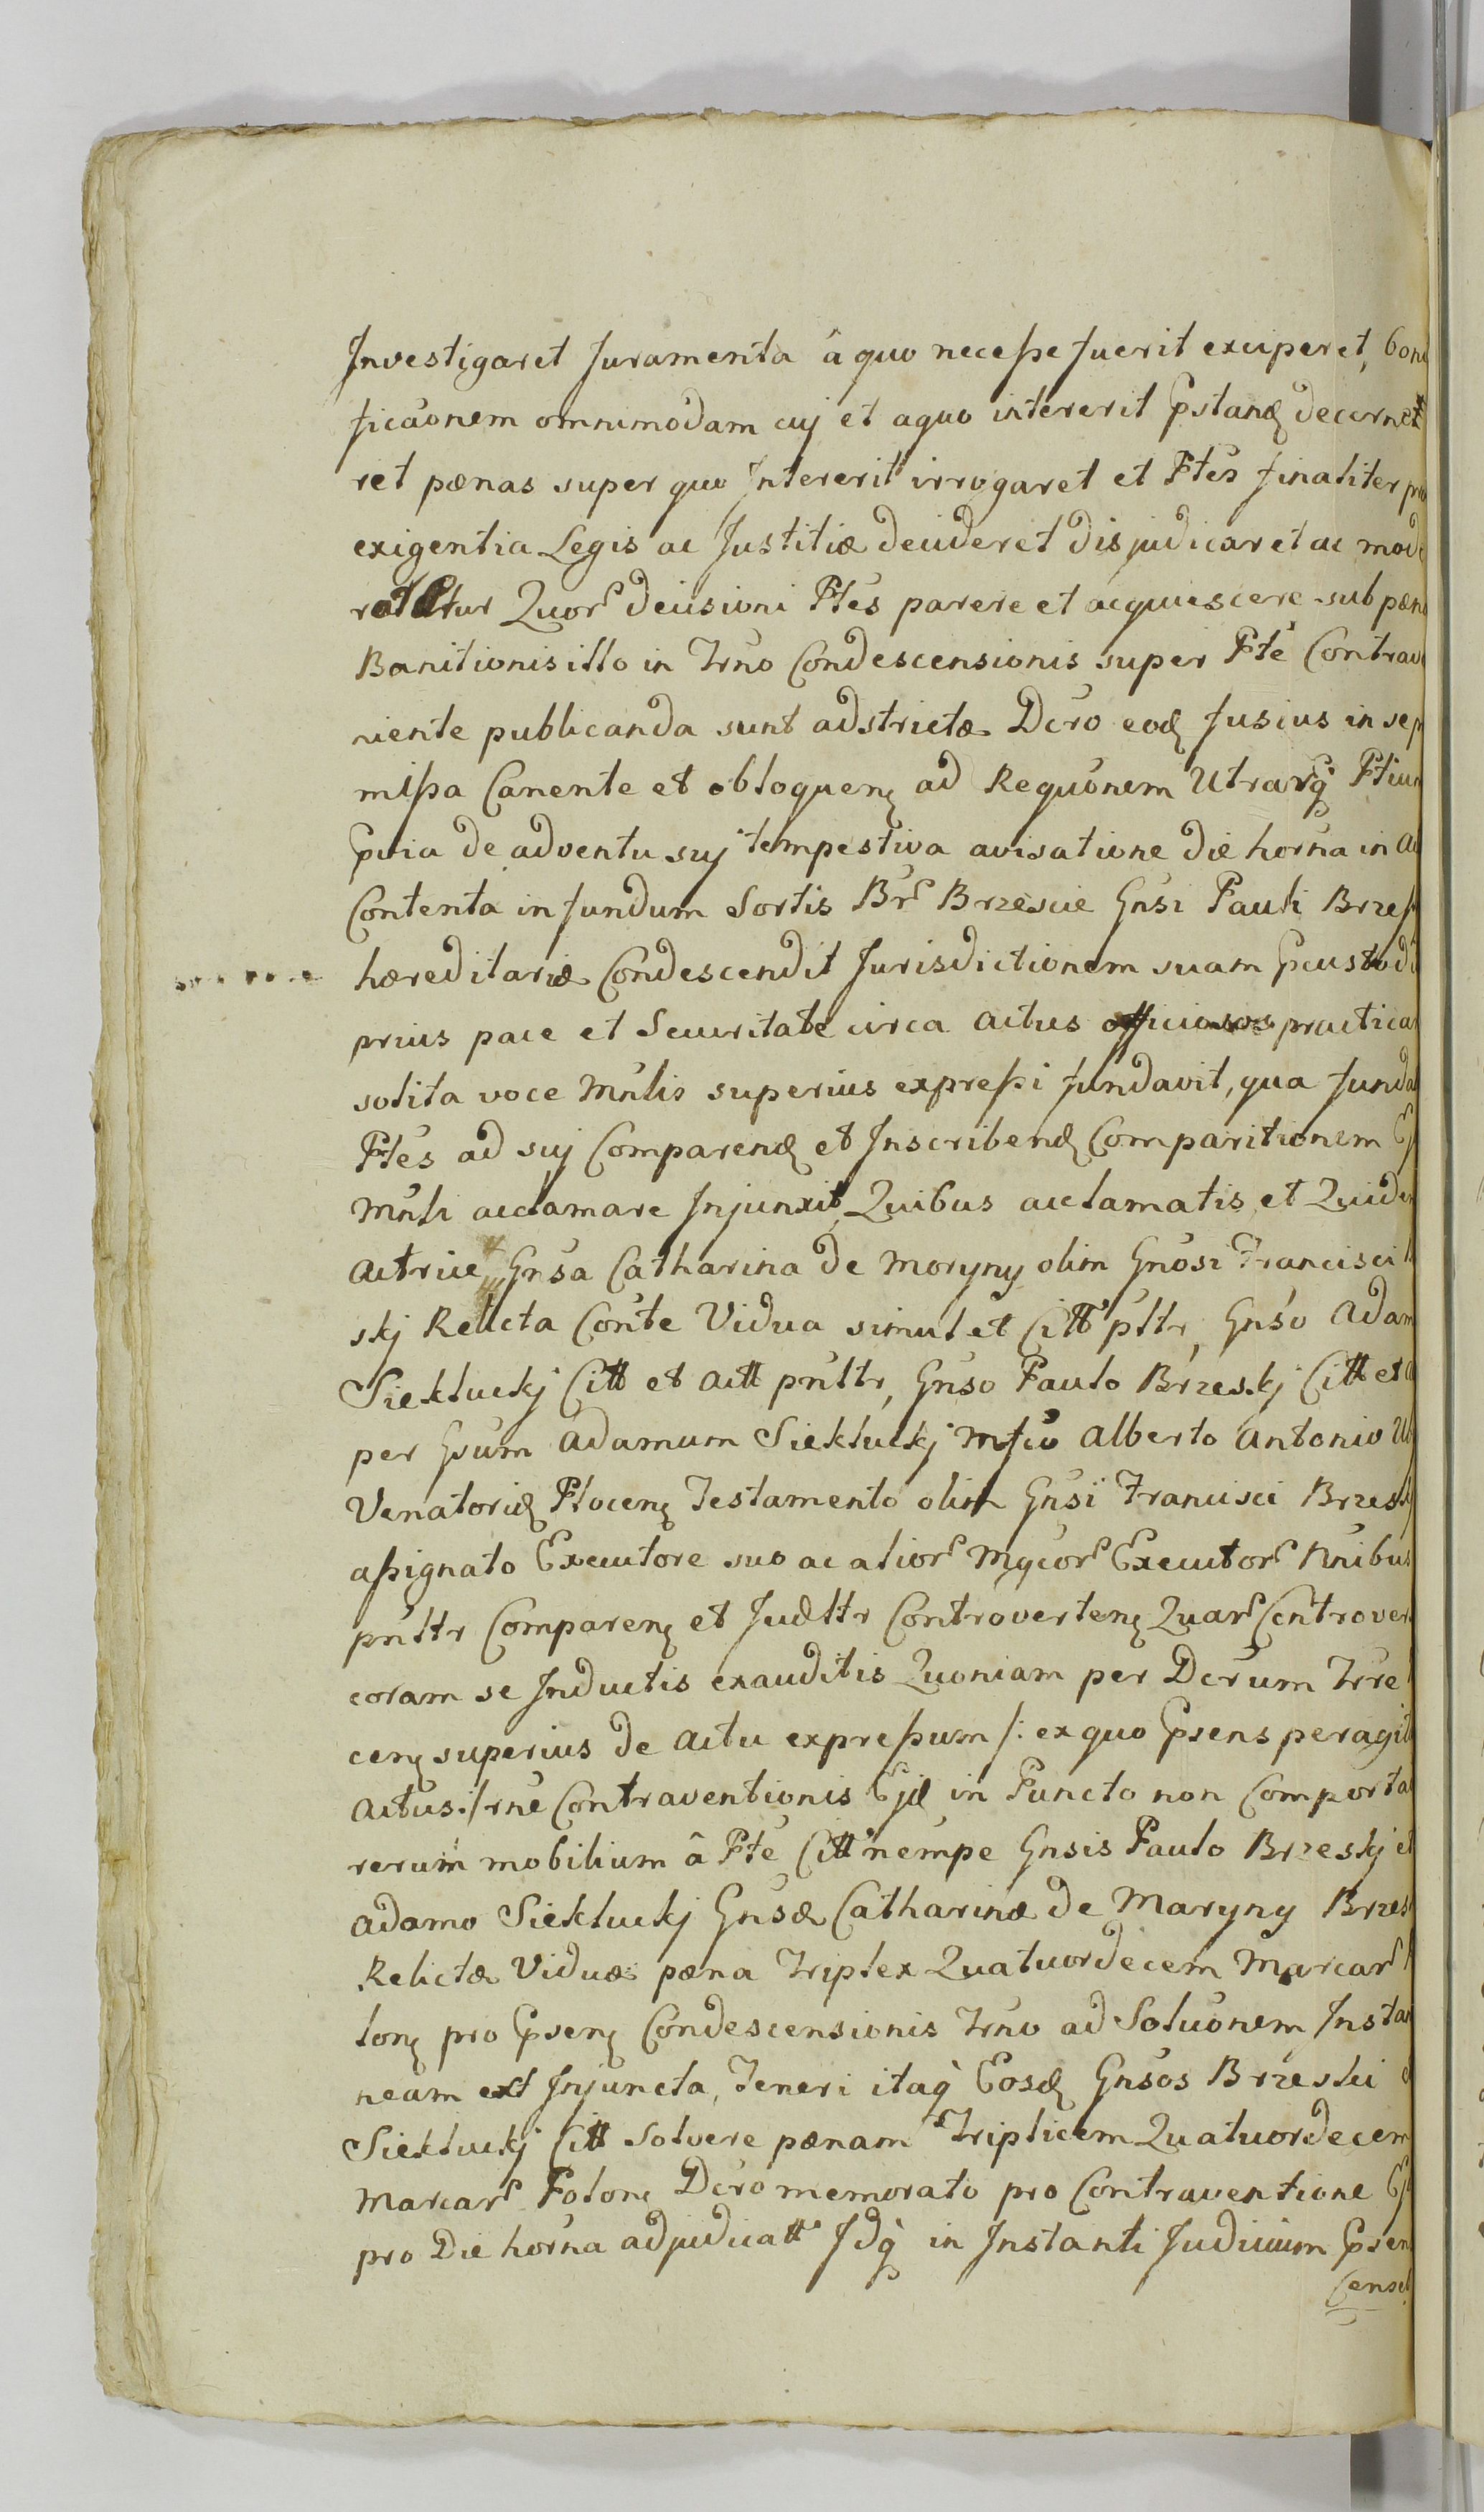 Investigaret Juramenta â quo necesse fuerit exciperet, boni
ficãonem omnimodam cuj et a quo intererit Pstand decernet
ret pænas super quo Intererit irrogaret et Ptes finaliter pro
exigentia Legis ac Justitiæ decideret disjudicaret ac mode
ratetur Quor decisioni Ptes parere et acquiescere sub pæna
Banitionis illo in Trno Condescensionis super Pte Contrave
niente publicanda sunt adstrictæ Dcro eod fusius in se
missa Canente et obloquen ad Requõnem Utrarq Ptiu
Pvia de adventu suj tempestiva avisatione die horna in Ac
Contenta in fundum Sortis Br Brzescie Gnsi Pauli Brzes
hæreditariæ Condescendit Jurisdictionem suam Pcustodi
prius pace et Securitate circa actus officiosos practica
solita voce Mnlis superius expressi fundavit, qua funda
Ptes ad suj Comparend et Inscribend Comparitionem
Mnli acclamare Injunxit, Quibus acclamatis et Quidem
Actrice Gnsa Catharina de Moryny olim Gnosi Francisci
skj Relicta Conte Vidua simul et Citt pltr, Gnso Adam
Siekluckj Citt et Actt pnltr, Gnso Paulo Brzeskj Citt et
per Gsum Adamum Siekluckj Mfco Alberto Antonio
Venatorid Plocen Testamento olim Gnsi Francisci Brzeskj
assignato Executore suo ac alior Mgcor Executor Nnibus
pnltr Comparen et Judltr Controverten Quar Controver
coram se Inductis exauditis Quoniam per Dcrum Trre
cen superius de Actu expressum /: ex quo Psens peragit
Actus :/ rne Contraventionis Ejd in Puncto non Comporta
rerum mobilium â Pte Citt nempe Gnsis Paulo Brzeskj et
Adamo Siekluckj Gnsæ Catharinæ de Maryny Brzes
Relictæ Viduæ pæna Triplex Quatuordecem Marcar
lon pro Psen Condescensionis Trno ad Solucõnem Instan
neam ext Injuncta, Teneri itaq Eosd Gnsos Brzeski
Siekluckj Citt Solvere pænam Triplicem Quatuordecem
Marcar Polon Dcro memorato pro Contraventione
pro Die horna adjudicatt Idq in Instanti Judicium Psen
Censet